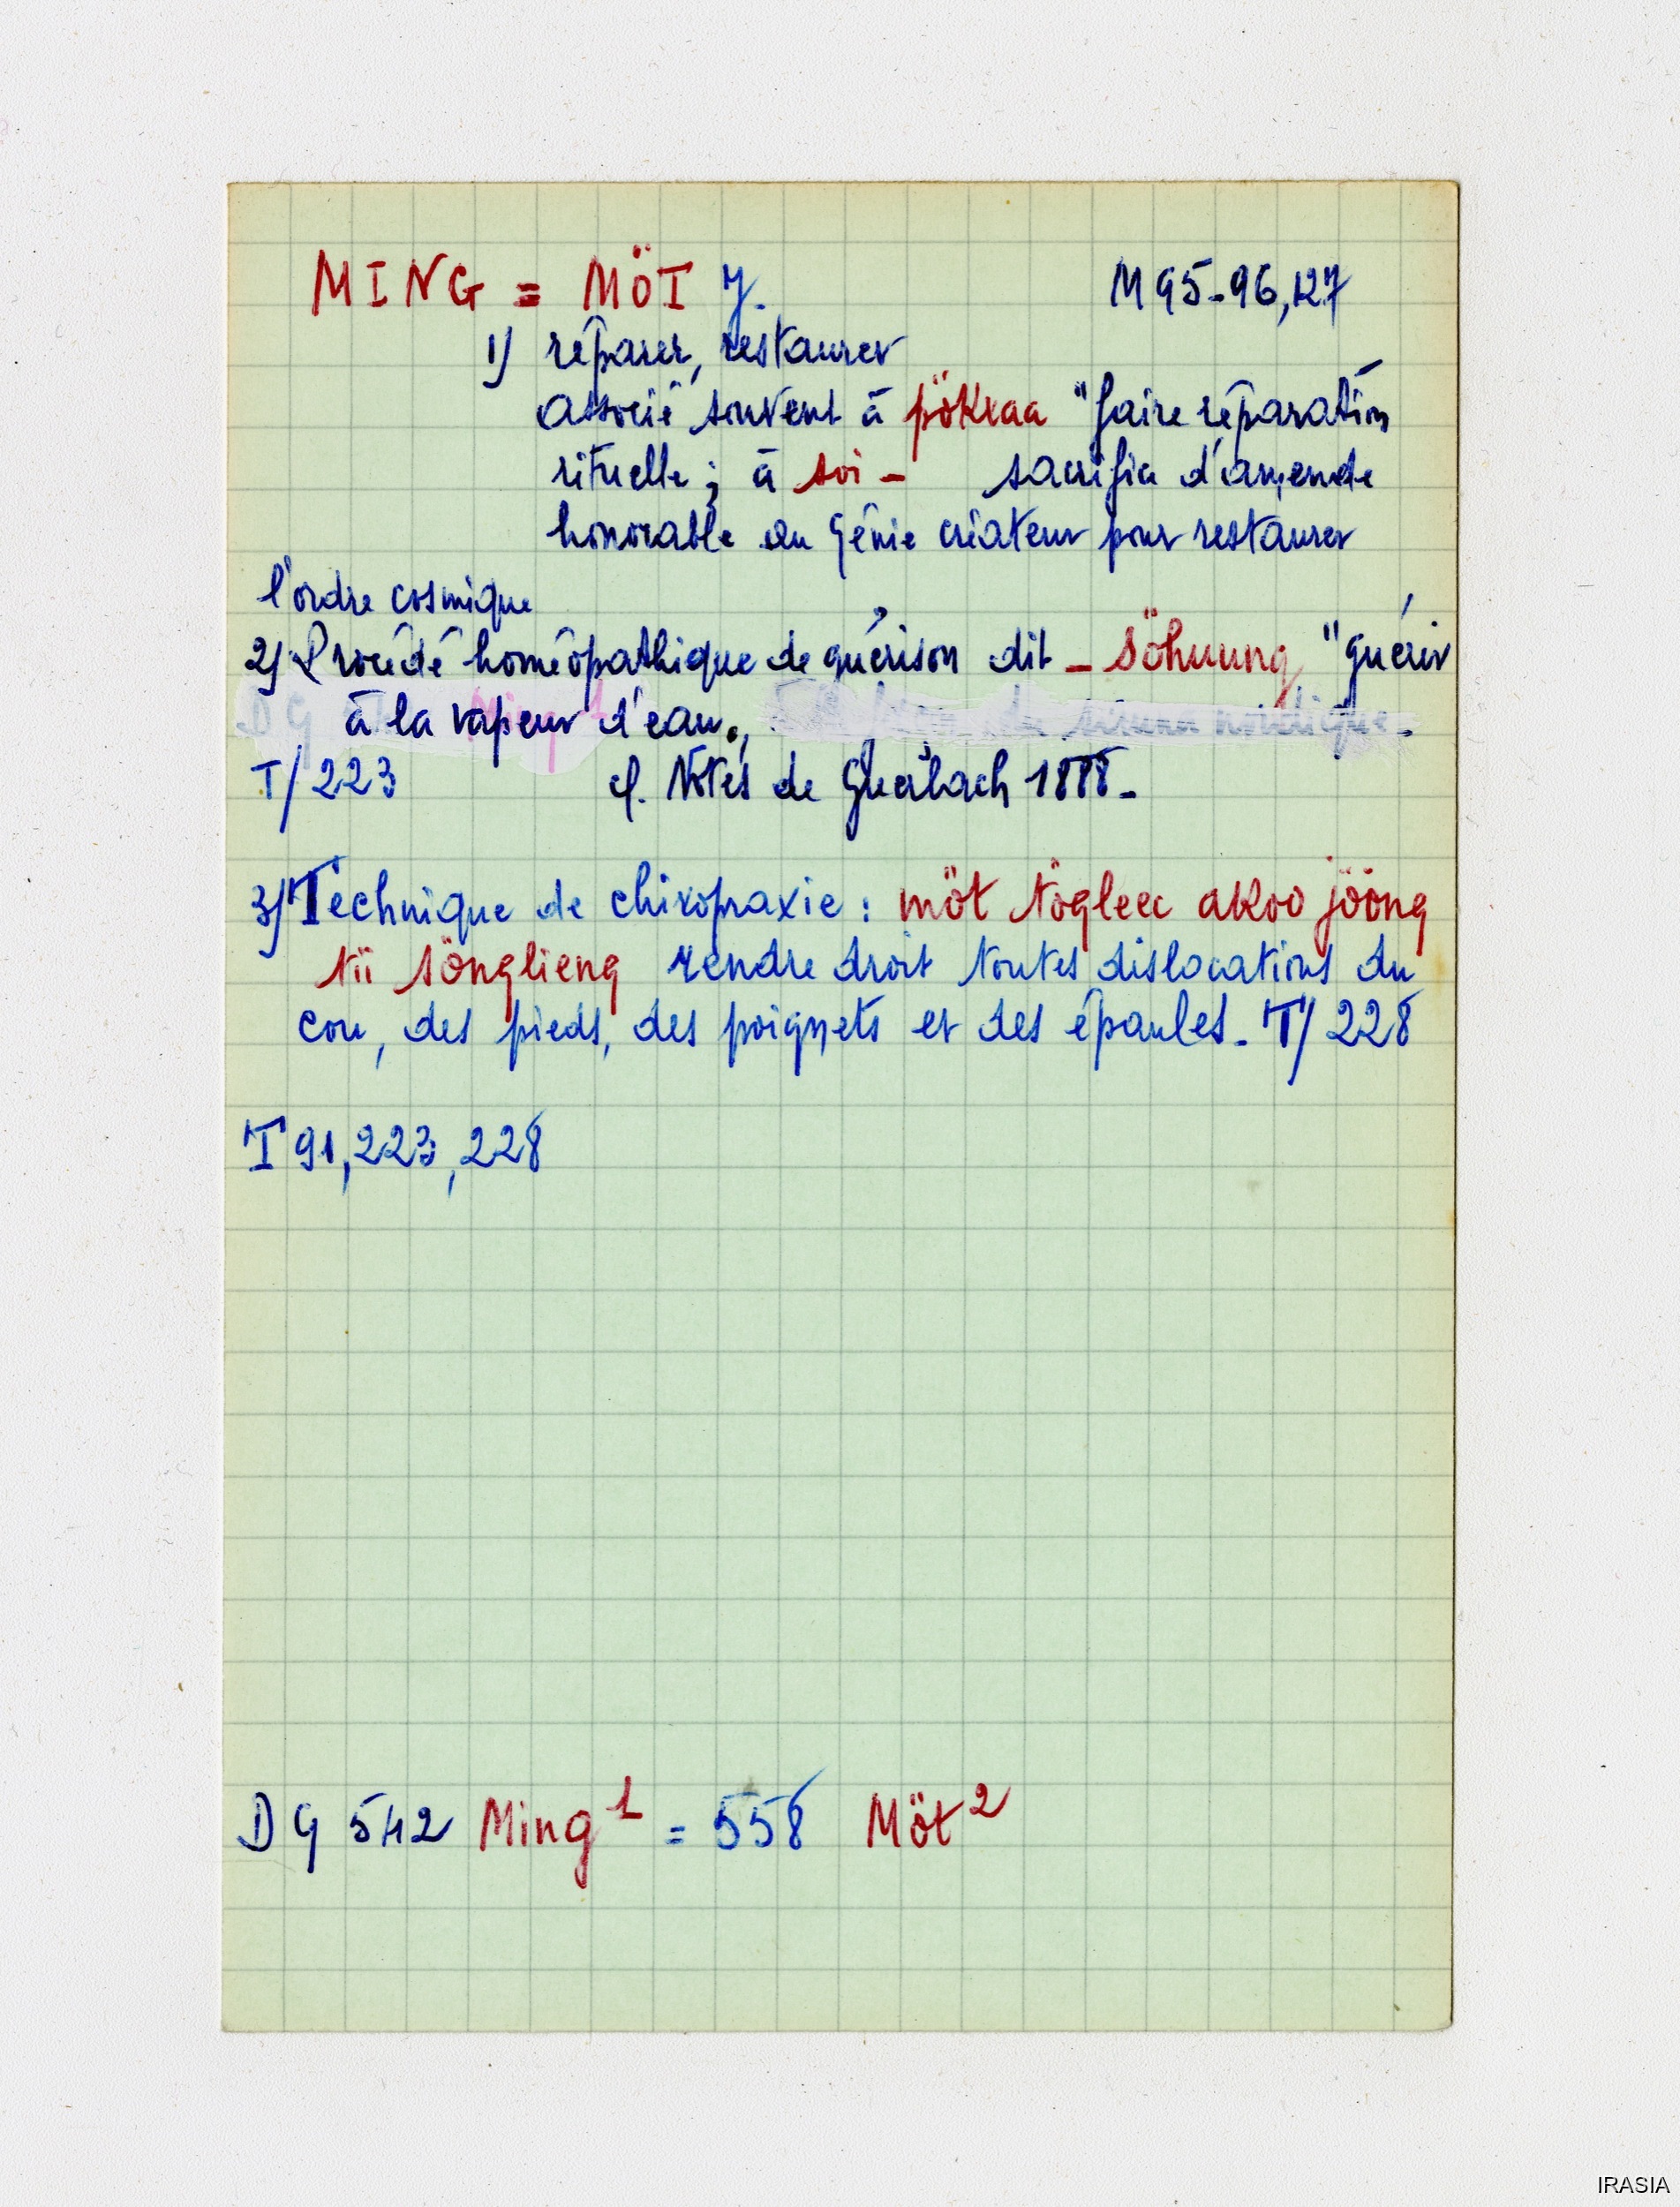 MING = MÖT J. M 95-96, 127
1) réparer, restaurer
associé souvent à pökraa "faire réparation
rituelle ; à soi - sacrifice d'amende
honorable au Génie créateur pour restaurer
l'ordre cosmique
2) Procédé homéopathique de guérison dit - söhuung "guérir
à la vapeur d'eau.,
T/223 cf. Notes de Guerlach 1888-
3) Technique de chiropraxie : möt tögleec akoo jöông
tii sönglieng rendre droit toutes dislocations du
cou, des pieds, des poignets et des épaules. T/228
T 91, 223, 228
DG 542 Ming1 = 558 Möt2
IRASIA